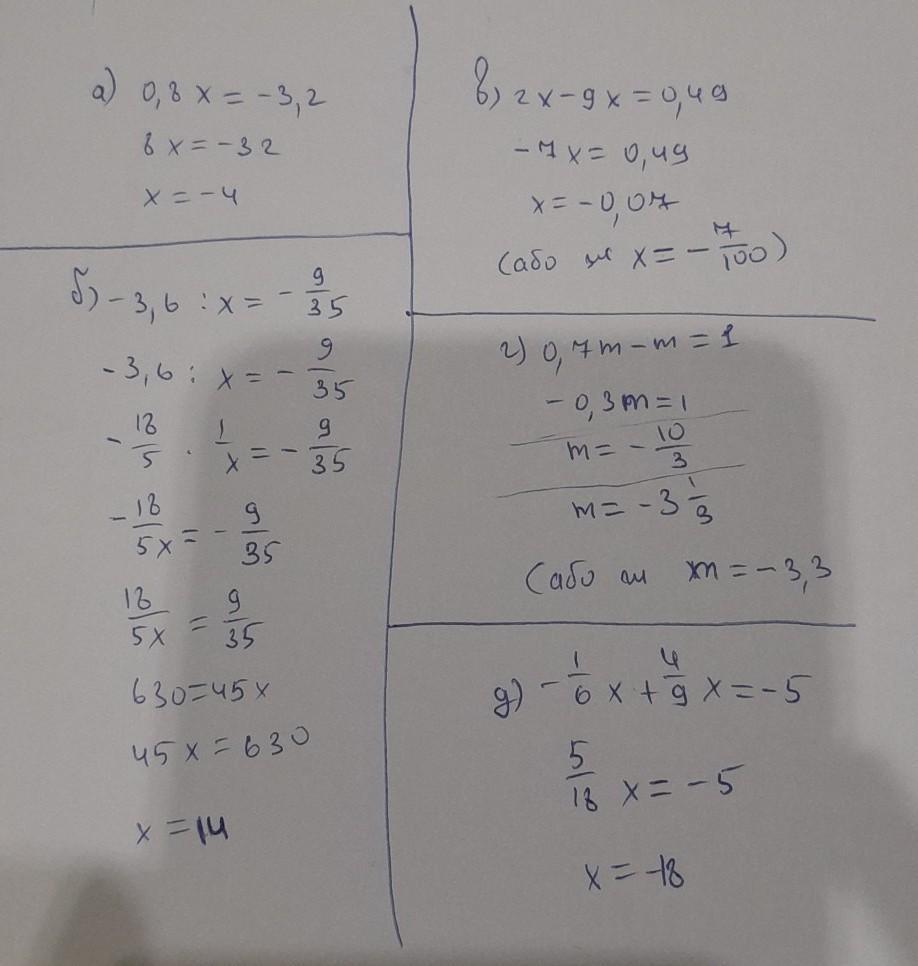 а) 0,8 x = -3,2
8 x = -32
x = -4
б) -3,6 : x = - 9/35
-3,6 : x = - 9/35
- 18/5 · 1/x = - 9/35
- 18/5x = - 9/35
18/5x = 9/35
630 = 45x
45x = 630
x = 14
в) 2x - 9x = 0,49
-7x = 0,49
x = -0,07
(або ж x = - 7/100)
г) 0,7m - m = 1
-0,3m = 1
m = - 10/3
m = -3 1/3
(або ж m = -3,3
д) - 1/6 x + 4/9 x = -5
5/18 x = -5
x = -18